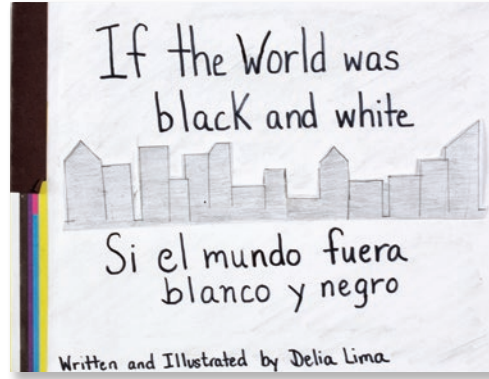 If the World was
black and white
Si el mundo fuera
blanco y negro
Written and Illustrated by Delia Lima